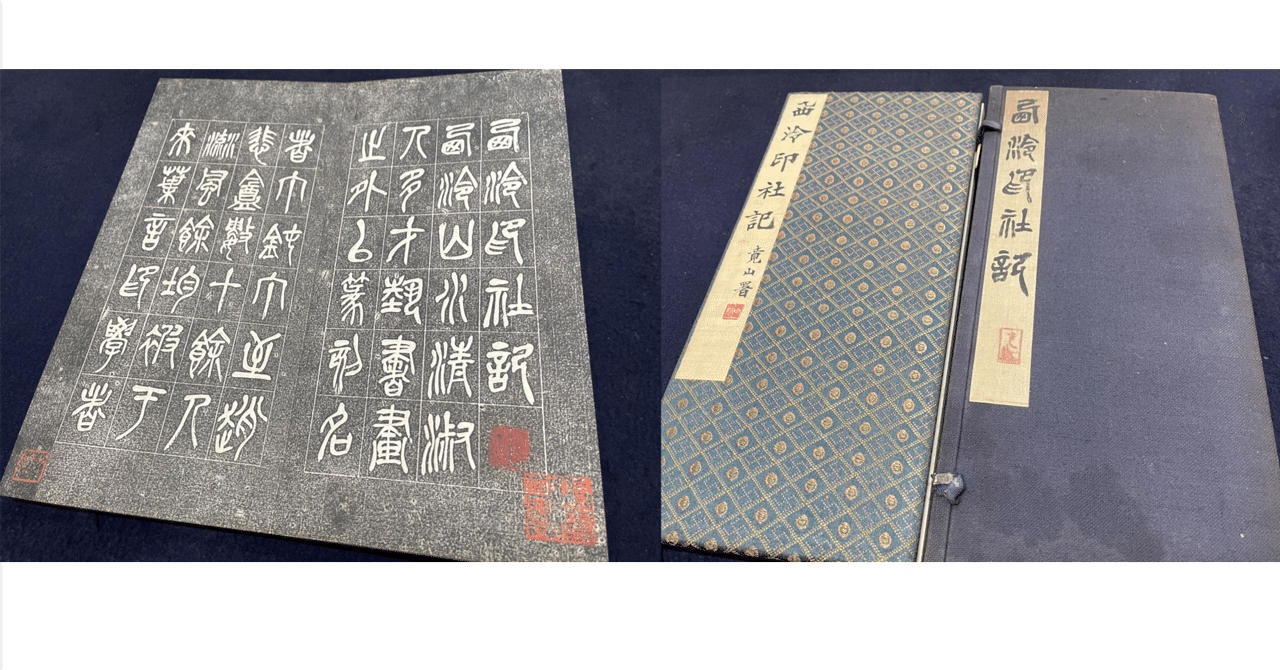 西泠印社記
西泠山水清淑
人多才藝書畫
之外以篆刻名
者丁鈍丁至趙
悲盦數十餘人
流風餘均被于
來葉言印學者
西泠印社記
竟山署
西泠印社記